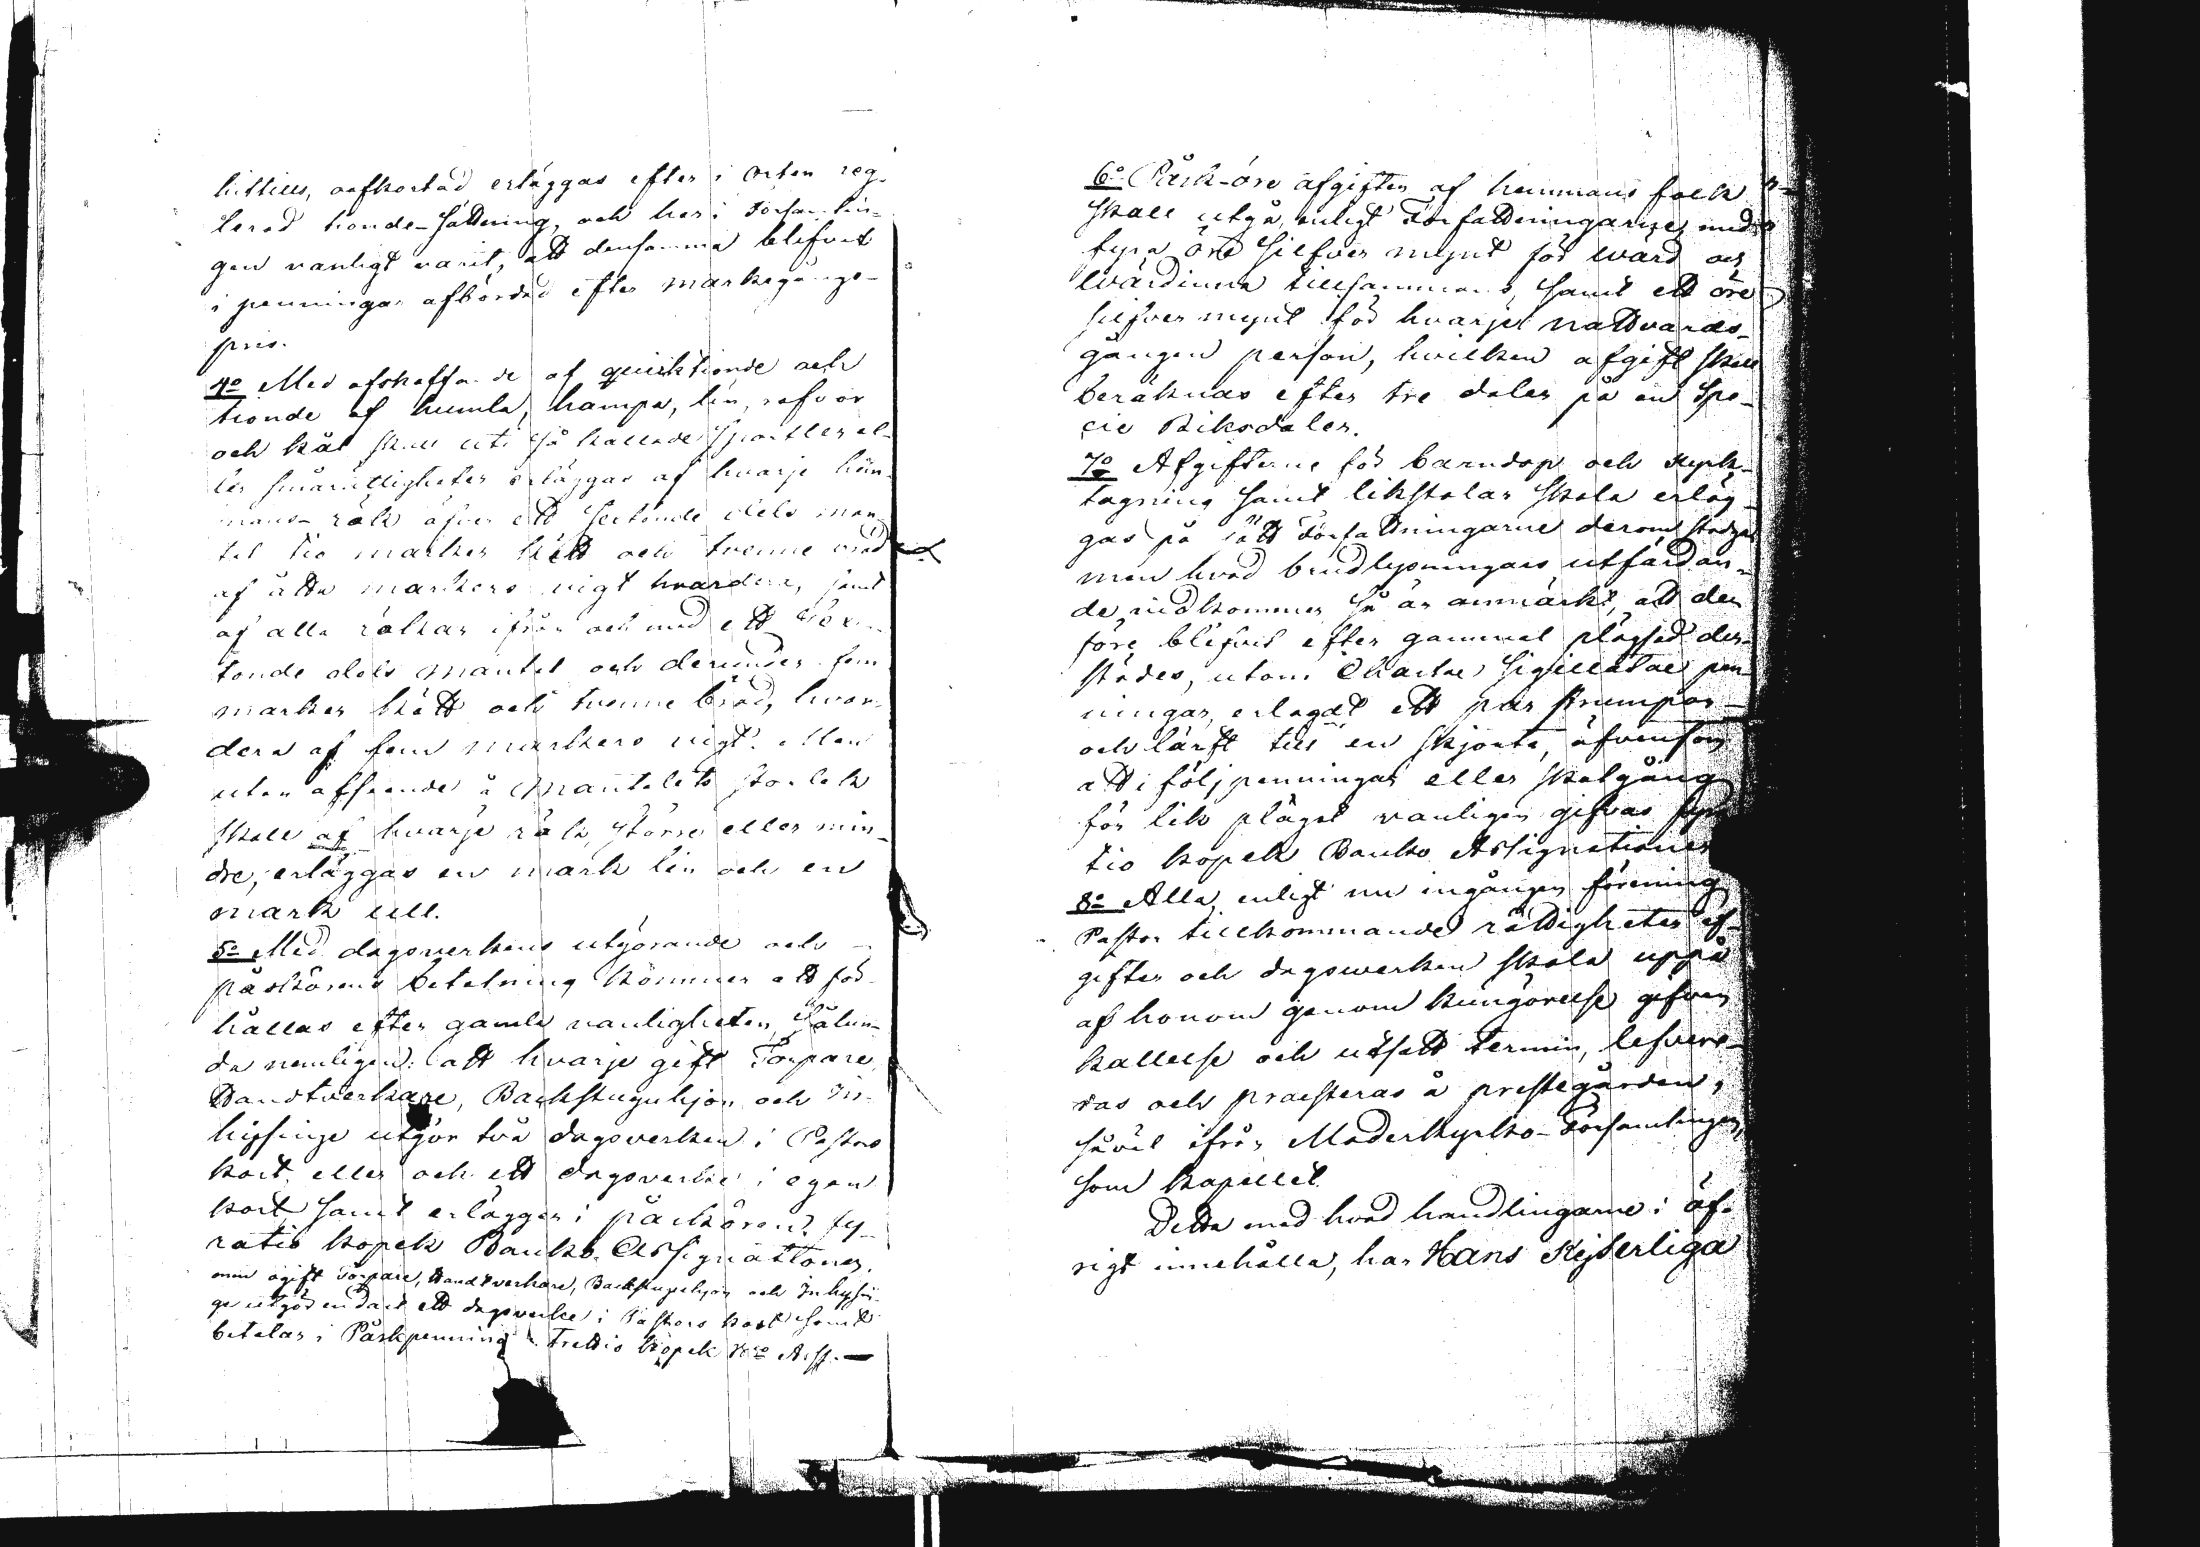 hittills, oafkortad erläggas efter i orten reg-
lerad tionde-sättning, och har i Församlin-
gen vanligt varit, att densamma blifvit
i penningar afbördad efter markegångs-
pris.
4o Med afskaffande af quicktionde och
tionde af humla, hampa, lin, rofvor
och kål skall uti så kallade Sportler el-
ler smårättigheter erläggas af hvarje hem-
mans rök öfver ett sextonde dels man-
tal tio marker kött och tvenne bröd
af åtta markers vigt hvardera, samt
af alla rökar ifrån och med ett Sex-
tonde dels mantal och derunder fem
marker kött och tvenne bröd, hvar-
dera af fem markers vigt. Men
utan afseende å Mantalets storlek
skall af hvarje rök, större eller min-
dre, erläggas en mark lin och en
mark ull.
5o Med dagsverkens utgörande och
påskörens betalning kommer att för-
hållas efter gamla vanligheten, Sålun-
da nemligen: att hvarje gift Torpare,
Handtverkare, Backstuguhjon och In-
hysinge utgör två dagsverken i Pastors
kost, eller och ett dagsverke i egen
kost samt erlägger i påskören fy-
ratio kopek Banko Assignationer,
men ogift Torpare, Handtverkare, Backstuguhjon och Inhysin-
ge utgör endast ett dagsverke i Pastors kost samt
betalar i Påskpenning Trettio kopek Bco Ass.
6o Påsk-öre afgiften af hemmans folk
skall utgå, enligt Författningarne, med
fyra öre Silfver mynt för wärd och
wärdinna tillsammans, samt ett öre
silfver mynt för hvarje nattvards-
gången person, hvilken afgift skall
beräknas efter tre daler på en Spe-
cie Riksdaler.
7o Afgifterne för barndop och kyrk-
tagning samt likstolar skola erläg-
gas på sätt Författningarne derom stadga
men hvad brudlysningars utfärdan-
de vidkommer, så är anmärkt, att der-
före blifvit efter gammal plägsed der-
städes, utom Chartae Sigillatae pen-
ningar, erlagdt ett par strumpor
och lärft till en skjorta, äfvensom
att i följpenningar eller skalgång
för lik plägat vanligen gifvas
tio kopek Banko Assignationer
8o Alla, enligt nu ingången förening
Pastor tillkommande rättigheter af-
gifter och dagswerken skola uppå
af honom genom kungörelse gifven
kallelse och utsatt termin, lefvere-
ras och praesteras å prestegården,
såväl ifrån Moderkyrko-Församlingen,
som kapellet.
Detta med hvad handlingarne i öf-
rigt innehålla, har Hans Kejserliga